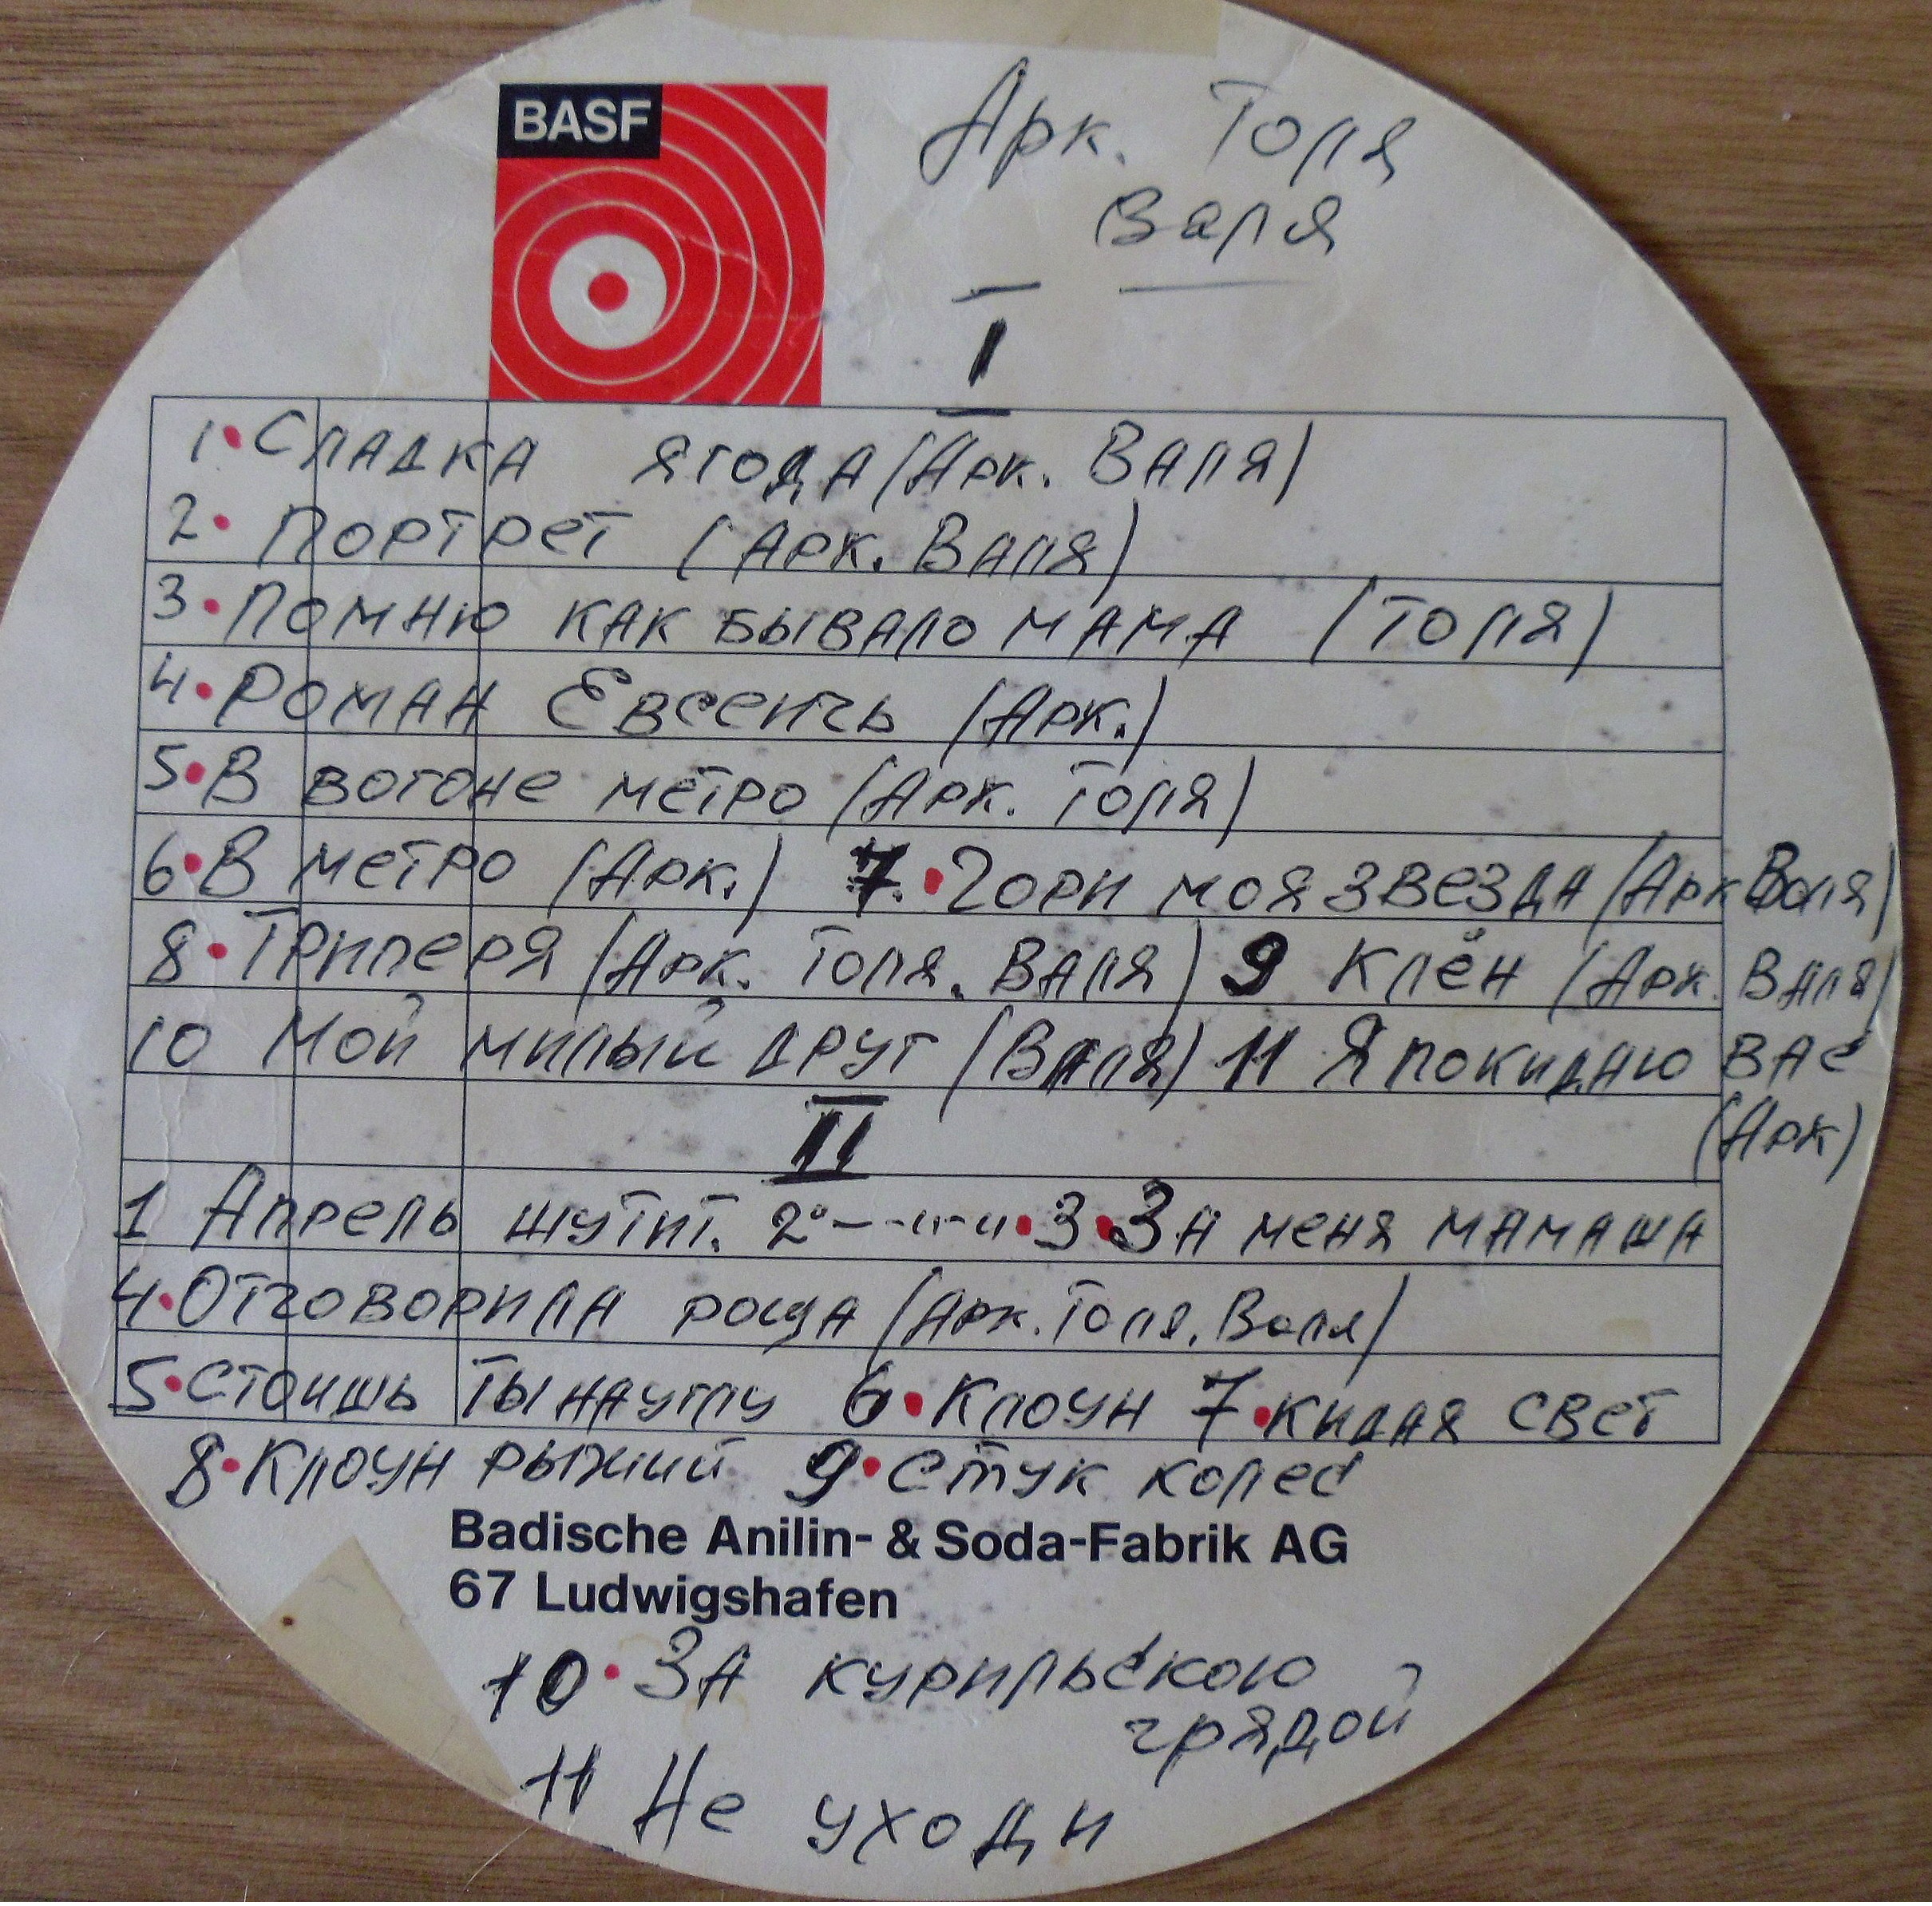 BASF
Арк. Толя
Валя
I
1. Сладка ягода (Арк. Валя)
2. Портрет (Арк. Валя)
3. Помню как бывало мама (Толя)
4. Роман Евсеичь (Арк.)
5. В вогоне метро (Арк. Толя)
6. В метро (Арк.) 7. Гори моя звезда (Арк Валя)
8. Триперя (Арк. Толя. Валя) 9 Клён (Арк. Валя)
10 Мой милый друг (Валя) 11 Я покидаю вас
(Арк)
II
1 Апрель шутит. 2 -"-"- 3. За меня мамаша
4. Отговорила роща (Арк. Толя, Валя)
5. Стоишь ты на углу 6. Клоун 7. Кидая свет
8. Клоун рыжий 9. Стук колес
Badische Anilin- & Soda-Fabrik AG
67 Ludwigshafen
10. За курильскою
грядой
11 Не уходи